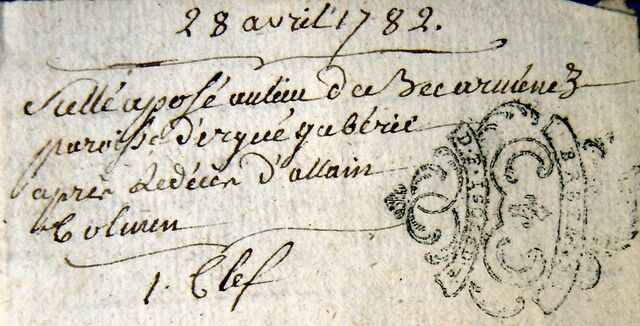 28 avril 1782.
Scellé aposé au lieu de Becarménez
paroisse d'ergué gabéric
apres le décès d'allain
Colmen
1. Clef